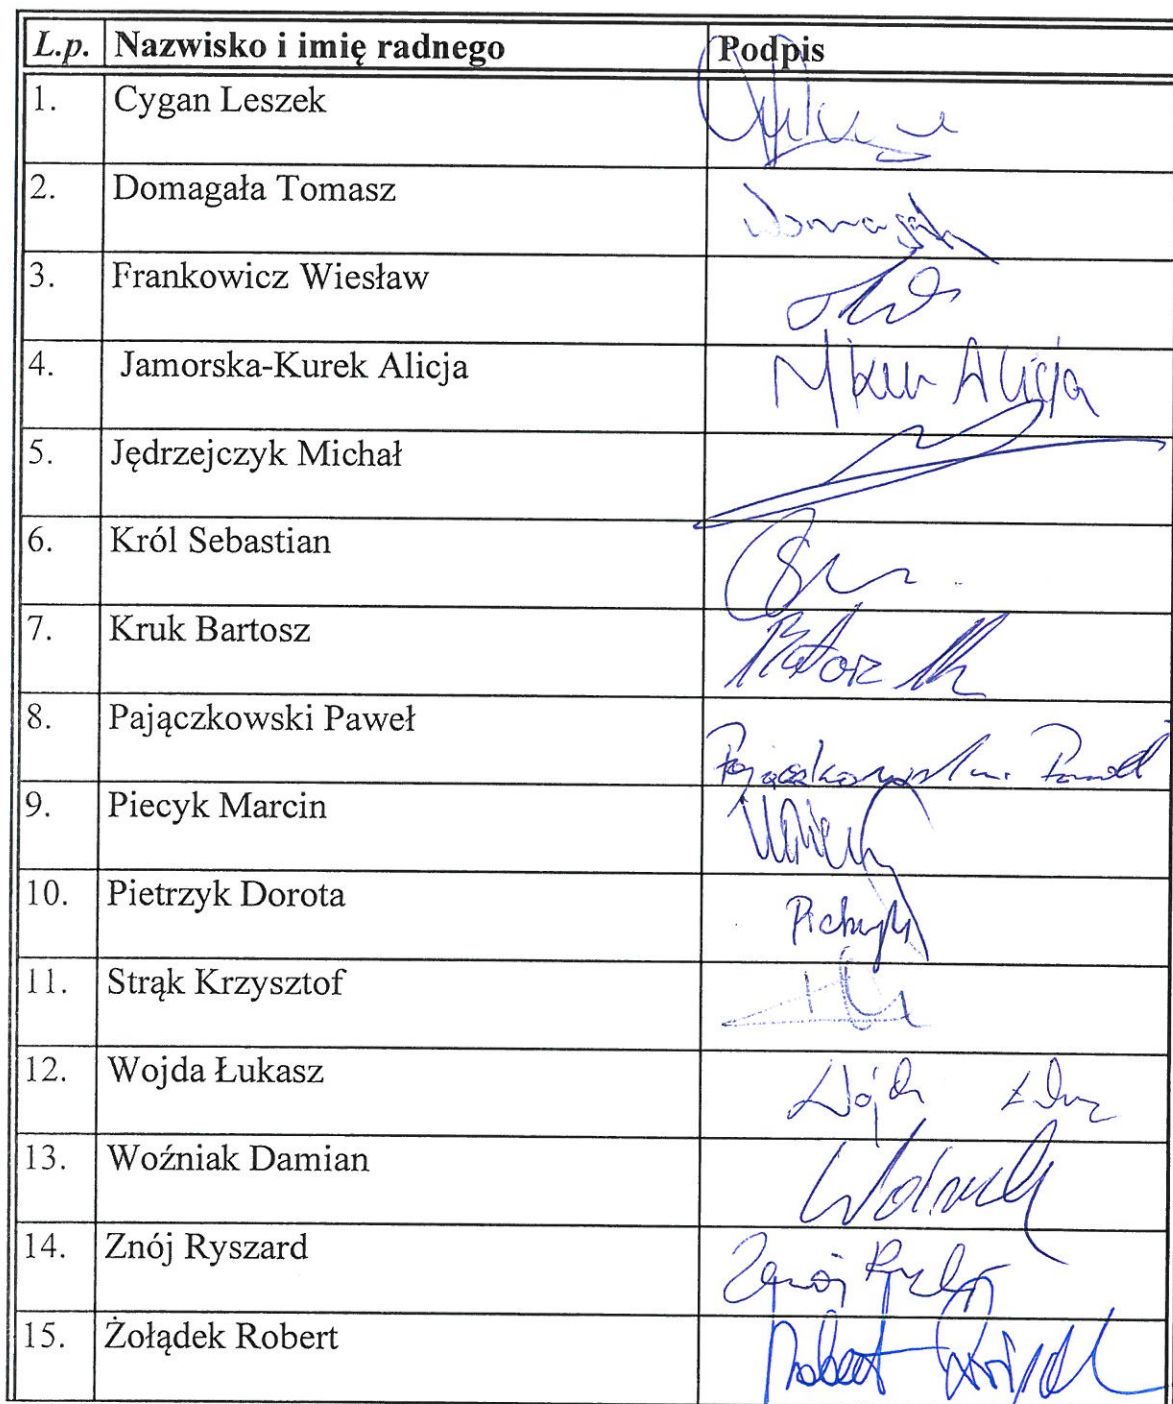 L.p. Nazwisko i imię radnego Podpis
1. Cygan Leszek
2. Domagała Tomasz Domagała
3. Frankowicz Wiesław
4. Jamorska-Kurek Alicja Alicja
5. Jędrzejczyk Michał
6. Król Sebastian
7. Kruk Bartosz
8. Pajączkowski Paweł Pajączkowski Paweł
9. Piecyk Marcin
10. Pietrzyk Dorota Pietrzyk
11. Strąk Krzysztof
12. Wojda Łukasz
13. Woźniak Damian
14. Znój Ryszard Znój
15. Żołądek Robert Robert